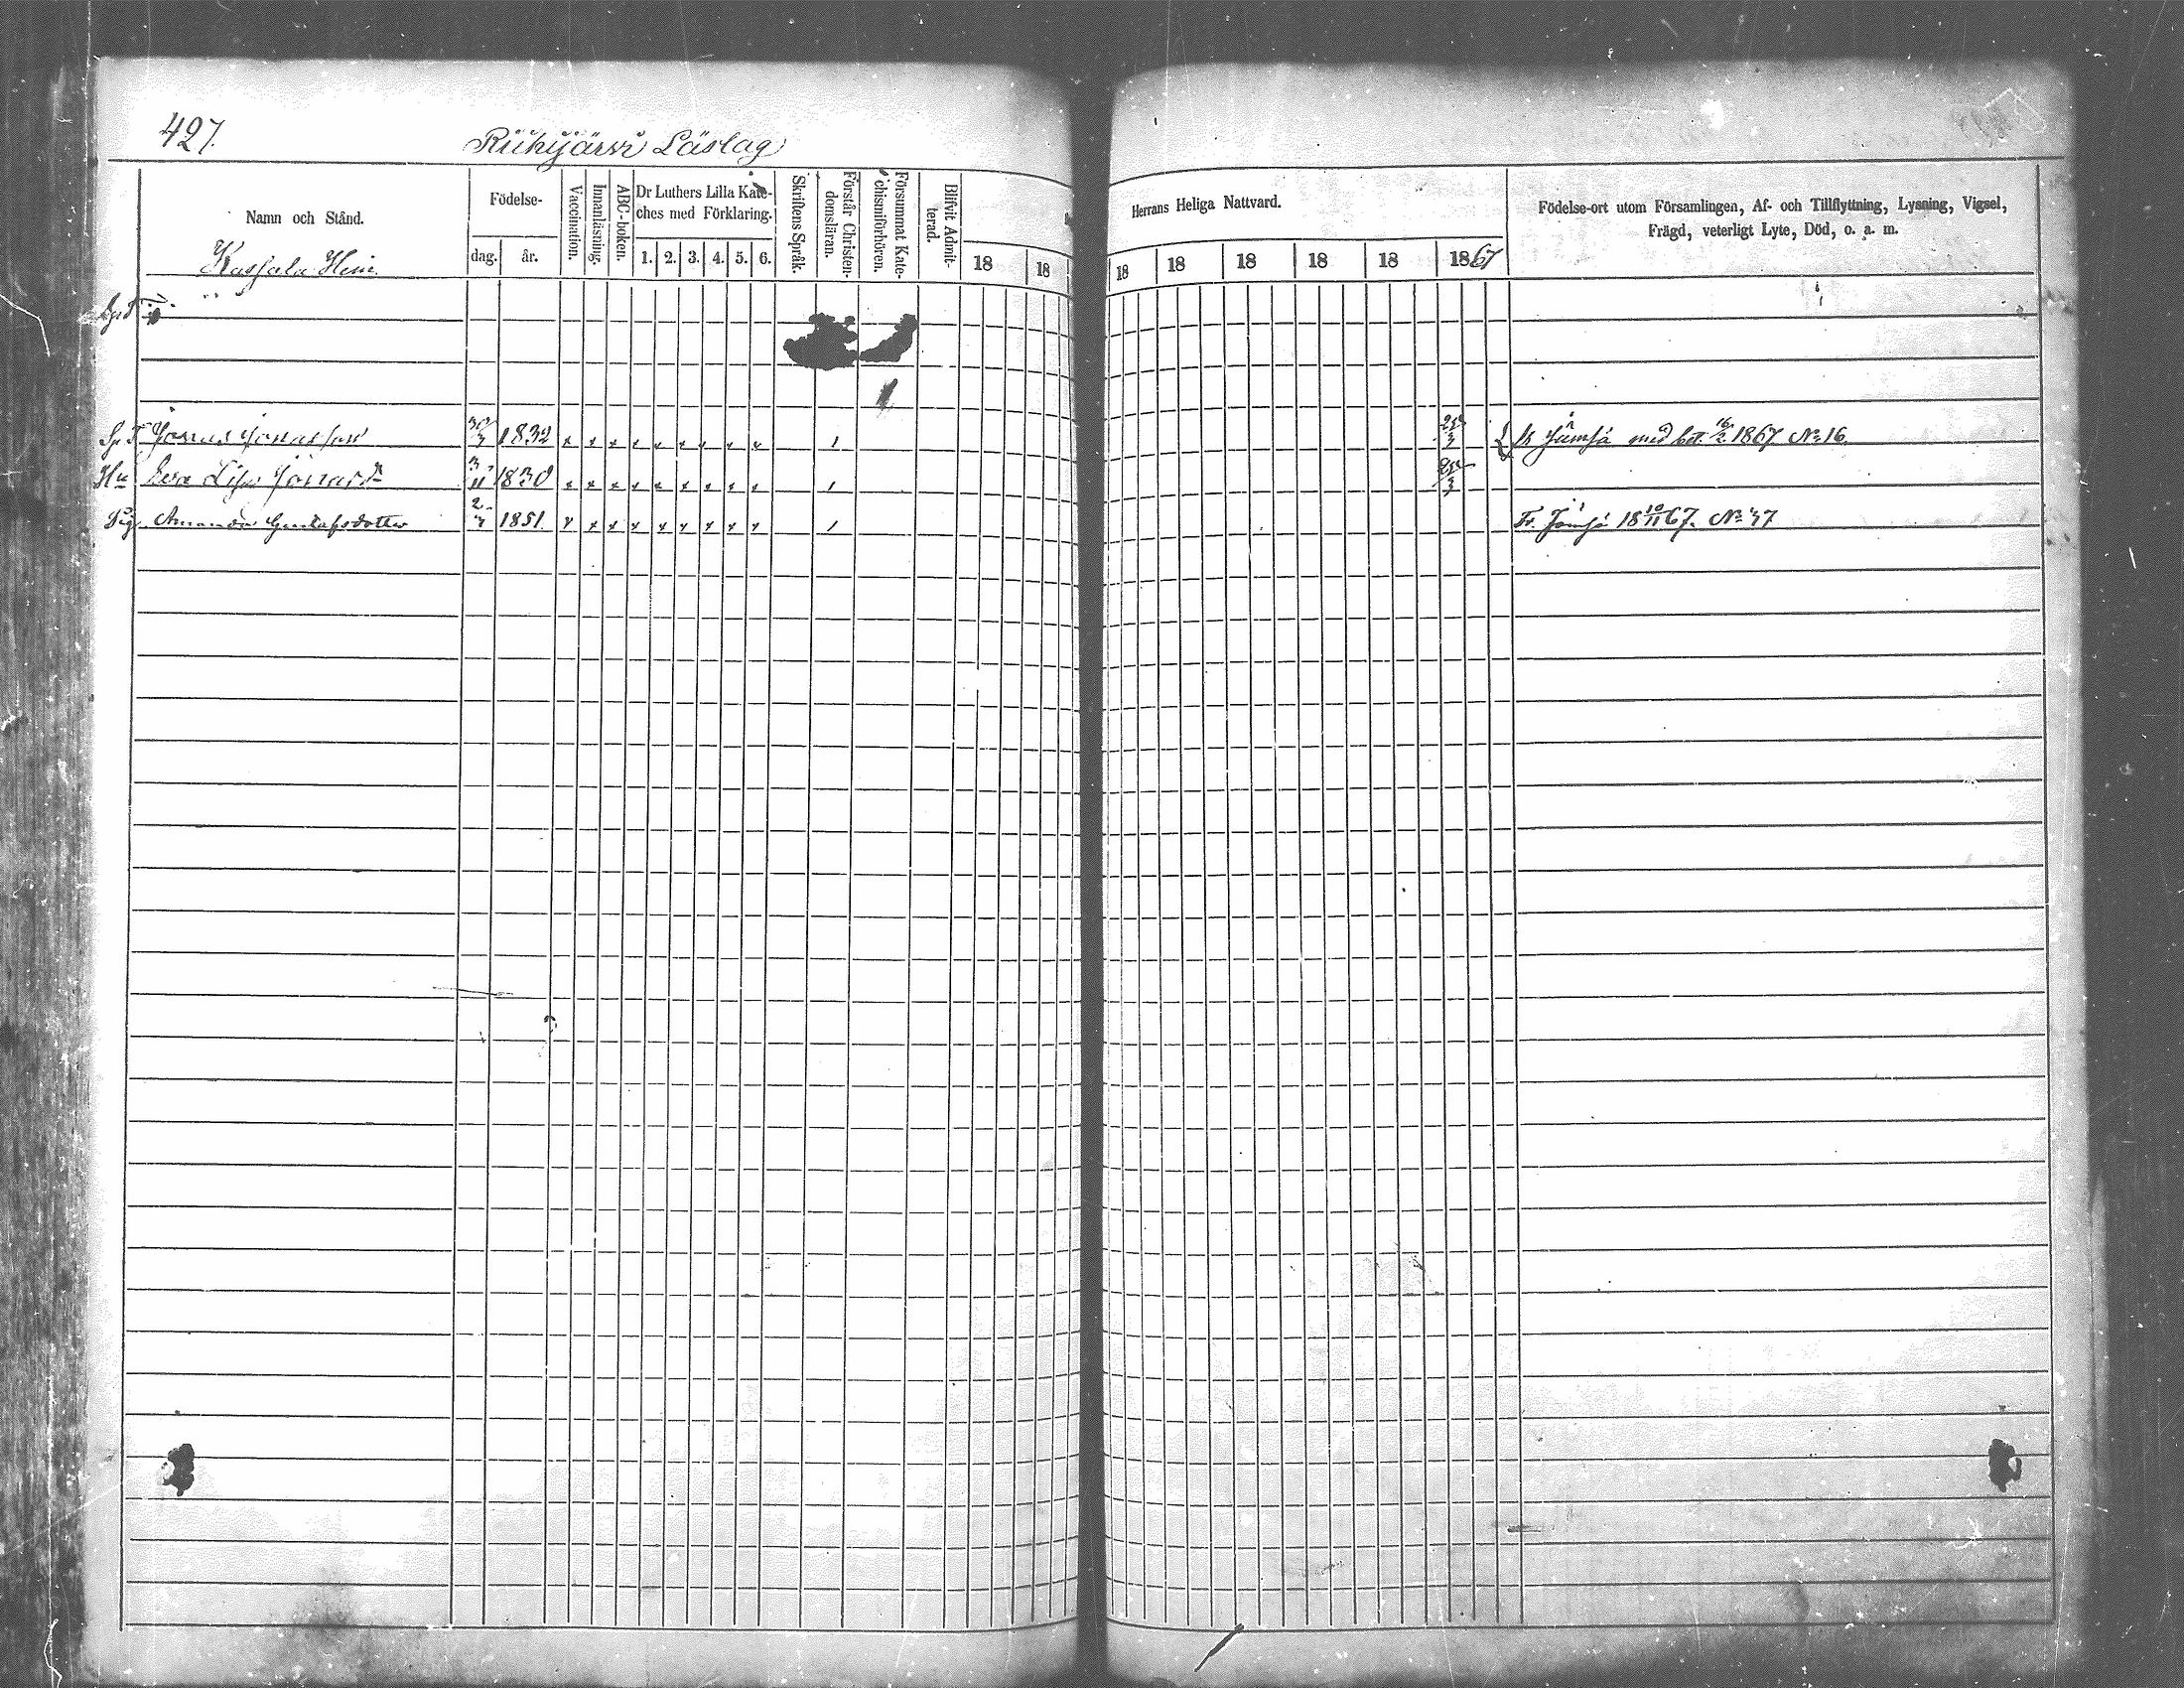 427.
Riihijärvi Läslag
Namn och Stånd.
Födelse-
dag. år.
Vaccination.
Innanläsning.
ABC-boken.
Dr Luthers Lilla Kate-
ches med Förklaring.
1. 2. 3. 4. 5. 6.
Skriftens Språk.
Förstår Christen-
domsläran.
Försummat Kate-
chismiförhören.
Blifvit Admit-
terad.
Herrans Heliga Nattvard.
18 18 18 18 18 18 18 1867
Födelse-ort utom Församlingen, Af- och Tillflyttning, Lysning, Vigsel,
Frägd, veterligt Lyte, Död, o. a. m.
Jonas Jonasson 30/3 1832 x x x x x x x x x 1 med bet. 16/2 1867 No 16.
Hu Eva Lisa 3/11 1830 x x x x x x x x x 1
Pig. Amanda Gustafsdotter 2/7 1851. x x x x x x x x x 1 Fr. Jämsä 18 10/11 67. No 47